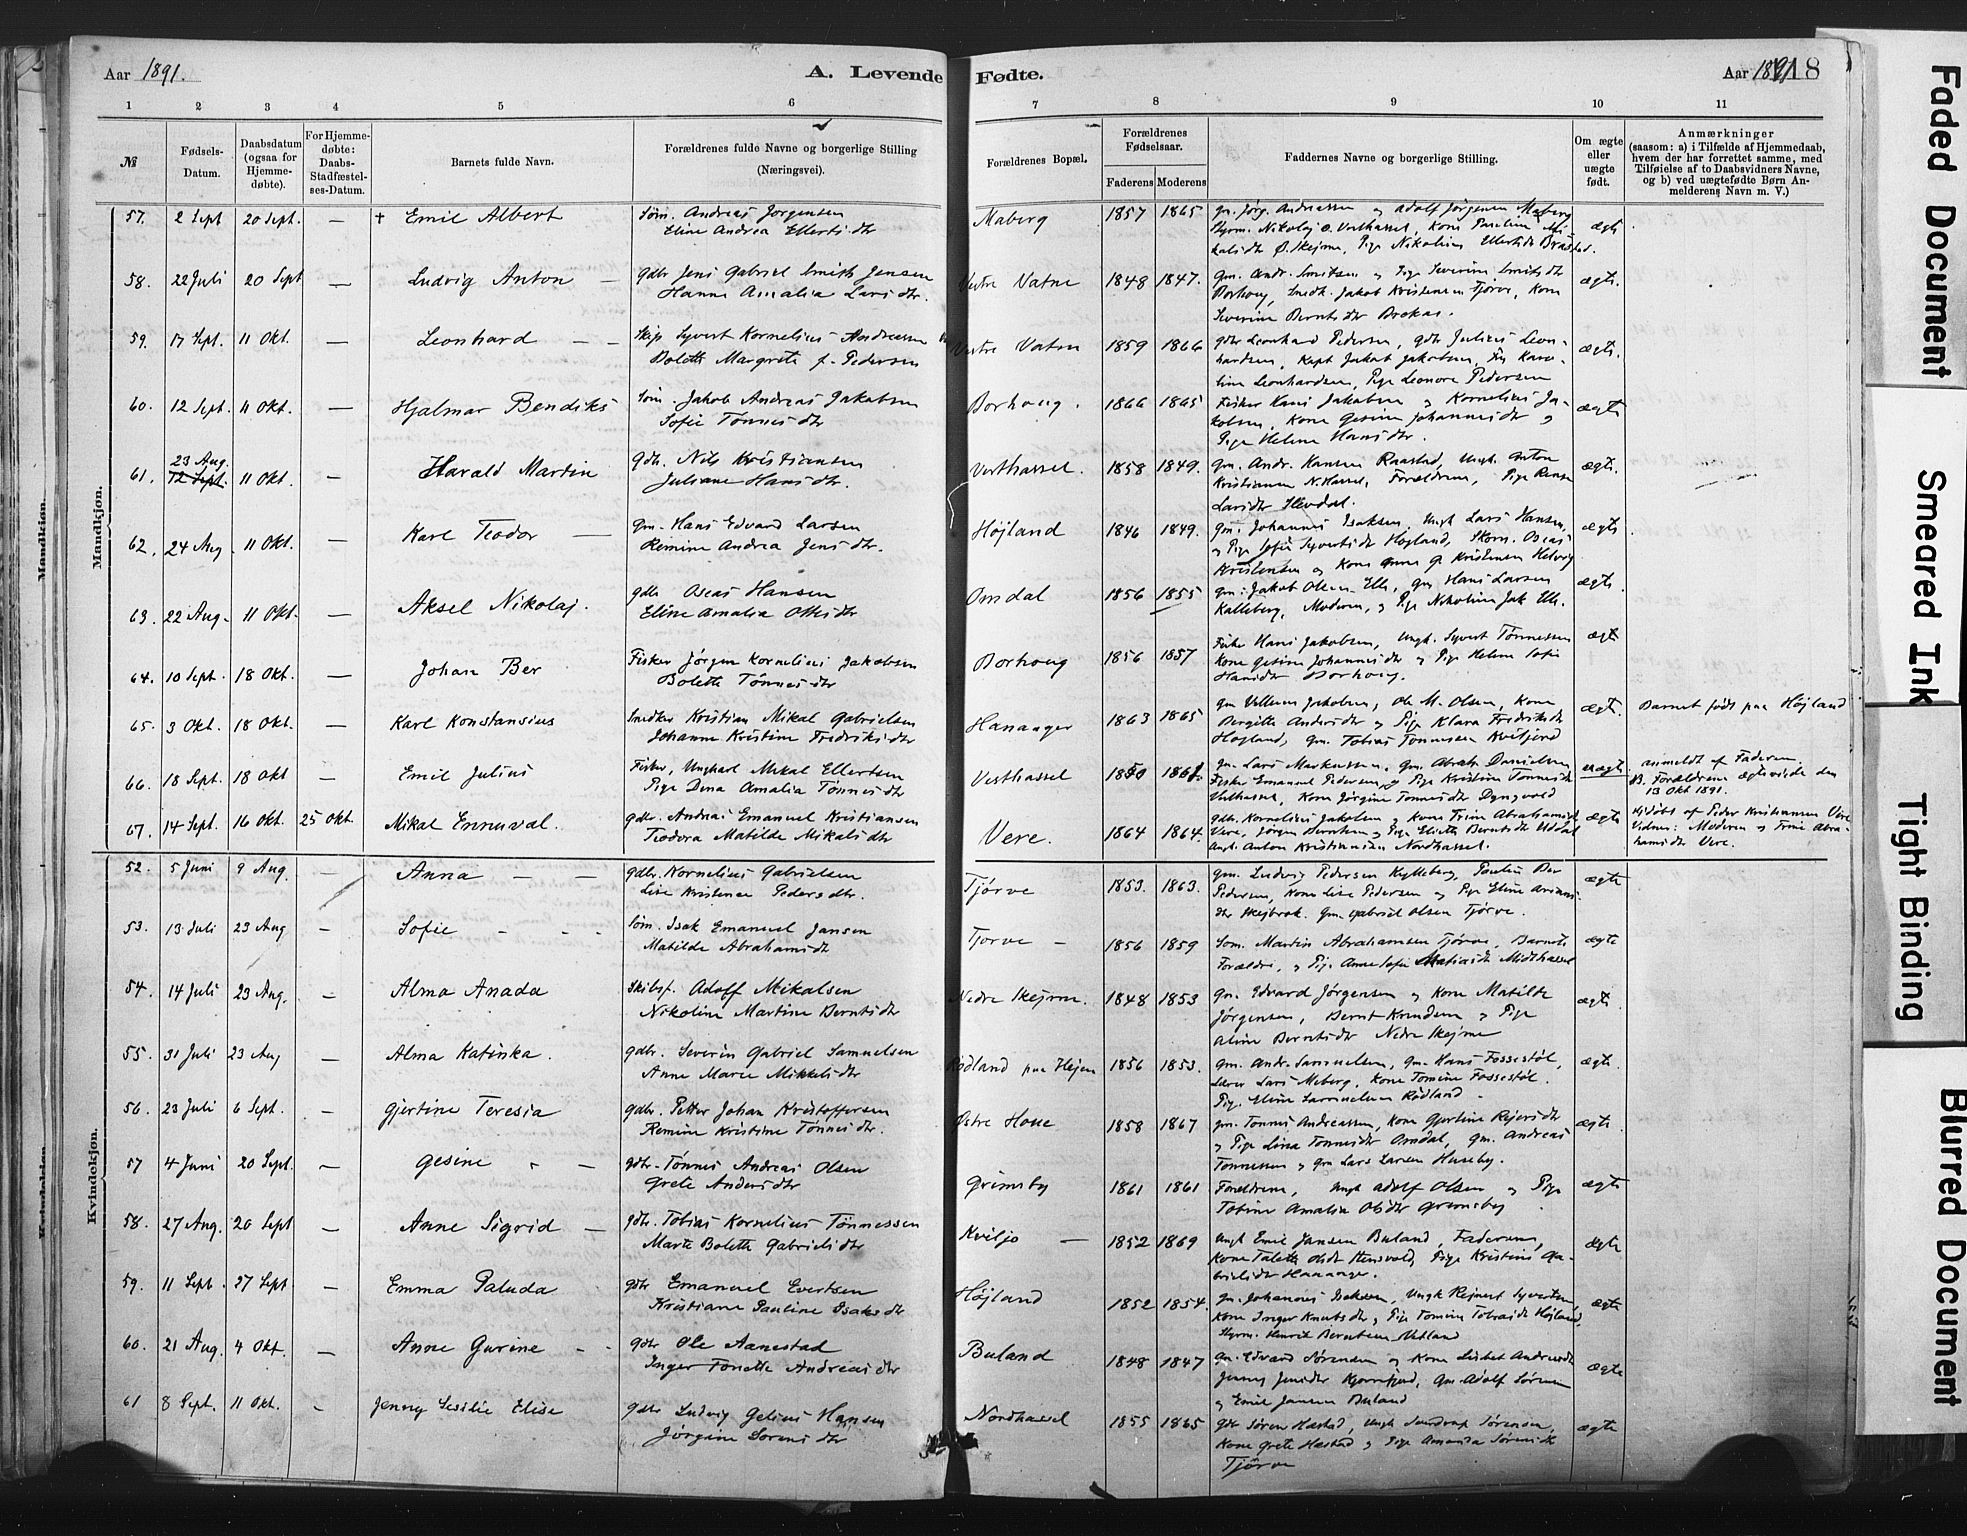 Aar 1891.
A. Levende Fødte.
Aar 1891
18
1 2 3 4 5 6 7 8 9 10 11
№
Fødsels-Datum.
Daabsdatum (ogsaa for Hjemmedøbte).
For Hjemmedøbte: Daabs-Stadfæstelses-Datum.
Barnets fulde Navn.
Forældrenes fulde Navne og borgerlige Stilling (Næringsvei).
Forældrenes Bopæl.
Forældrenes Fødselsaar.
Faderens Moderens
Faddernes Navne og borgerlige Stilling.
Om ægte eller uægte født.
Anmærkninger
(saasom: a) i Tilfælde af Hjemmedaab, hvem der har forrettet samme, med Tilføielse af to Daabsvidners Navne, og b) ved uægtefødte Børn Anmelderens Navn m. V.)
Mandkjøn.
57. 2 Sept 20 Sept. — + Emil Albert
Søm. Andreas Jørgensen
Eline Andrea Ellertsdtr
Maberg 1857 1865
gm. Jørg. Andreassen og Adolf Jørgensen Maberg
ægte
58. 22 Juli 20 Sept — Ludvig Anton —
gdbr Jens Gabriel Smith Jensen
Hanne Amalia Larsdtr.
Vestre Vatne 1848 1847.
gm. Andr. Smitsen og Pige Severine Smitsdtr
Borhoug, Smedk. Jakob Kristensen Tjørve, Kone
Severine Berntsdtr Brekas.
ægte.
59. 17 Sept. 11 Okt. — Leonhard — —
Skip Syvert Kornelius Andreassen
Bolette Margrete f. Pedersen
Vestre Vatne 1859 1866
gdbr Leonhard Pedersen, gdbr Julius Leonhardsen, Kapt Jakob Jakobsen, Karoline Leonhardsen, Pige Leonora Pedersen
ægte.
60. 12 Sept. 11 Okt. — Hjalmar Bendiks
Søm. Jakob Andreas Jakobsen
Sofie Tønnesdtr
Borhoug. 1866 1865
Fisker Hans Jakobsen og Kornelius Jakobsen, Kone Gesine Johannesdtr og
Pige Helene Hansdtr.
ægte
61. 23 Aug. 12 Sept. 11 Okt. — Harald Martin
gdbr. Nils Kristiansen
Juliane Hansdtr.
Vesthassel. 1858 1849.
gm. Andr. Hansen Raastad, Ungk. Anton
Kristiansen N. Hassel, Forældrene, Pige
Larsdtr
ægte.
62. 24 Aug. 11 Okt. — Karl Teodor —
gm. Hans Edvard Larsen
Remine Andrea Jensdtr.
Højland 1846 1849.
gm. Johannes Isaksen, Ungk Lars Hansen,
og Pige Sofie Syvertsdtr Højland, Skom. Oscar
Kristensen og Kone Anna
ægte
63. 22 Aug. 11 Okt. — Aksel Nikolaj.
gdbr Oscar Hansen
Eline Amalia Ottesdtr
Omdal 1856 1855
gm: Jakob Olsen Elle, gm Hans Larsen
Kalleberg, Moderen, og Pige Nikoline Jak Elle.
ægte.
64. 10 Sept. 18 Okt. — Johan Ber
Fisker Jørgen Kornelius Jakobsen
Bolette Tønnesdtr
Borhoug 1856 1857
Fisker Hans Jakobsen, Ungk. Syvert Tønnessen
Kone Gesine Johannesdtr og Pige Helene Sofie
Hansdtr Borhoug.
ægte
65. 3 Okt. 18 Okt. — Karl Konstansius
Smedker Kristian Mikal Gabrielsen
Johanne Kristine Fredriksdtr
Hananger 1863 1865
gm Villum Jakobsen, Ole M. Olsen, Kone
Bergitte Andersdtr og Pige Klara Fredriksdtr
Højland, gm. Tobias Tønnessen
ægte.
Barnet født paa Højland
66. 18 Sept. 18 Okt — Emil Julius
Fisker, Ungkarl Mikal Ellertsen
Pige Dina Amalia Tønnesdtr
Vesthassel
gm. Lars Markussen, gm. Abrah. Danielsen
Fisker Emanuel Pedersen og Pige Kristine Tønnesdtr
Vesthassel, Kone Jørgine Tønnesdtr Dyngvold
uægte
anmeldt af Faderen.
B. Forældrene ægteviede den
13 Okt 1891.
67. 14 Sept. 16 Okt. 25 Okt. Mikal Ennuval.
gdbr. Andreas Emanuel Kristiansen
Teodora Matilde Mikalsdtr
Vere. 1864 1864.
gdbr. Kornelius Jakobsen og Kone Trine Abrahamsdtr
Vere, Jørgen Berntsen og Pige Elisette Berntsdtr Uddal
Ungk. Anton Kristiansen Nordhassel.
ægte
Hjdøbt af Peder Kristiansen Vere
Vidner: Moderen og Trine Abrahamsdtr Vere.
Kvindekjøn.
52. 5 Juni 9 Aug. — Anna — —
gdbr. Kornelius Gabrielsen
Lise Kristense Pedersdtr.
Tjørve 1853. 1863.
gm. Ludvig Pedersen Kylleberg, Paulus Ber
Pedersen, Kone Lise Pedersen og Pige Eline
gm. Gabriel Olsen Tjørve.
ægte
53. 13 Juli 23 Aug — Sofie - - -
Søm. Isak Emanuel Jansen
Matilde Abrahamsdtr
Tjørve — 1856 1859
Søm. Martin Abrahamsen Tjørve, Barnets
Forældre, og Pige Anne Sofie Matiasdtr Midthassel
ægte
54. 14 Juli 23 Aug. — Alma Anada
Skibsf. Adolf Mikalsen
Nikoline Martine Berntsdtr
Nedre Skejme. 1848 1853
gm. Edvard Jørgensen og Kone Matilde
Jørgensen, Bernt Knudsen og Pige
Aline Berntsdtr Nedre Skejme
ægte.
55. 31 Juli 23 Aug — Alma Katinka.
gdbr. Severin Gabriel Samuelsen
Anne Marie Mikkelsdtr
Rødland paa Hejen 1856 1853.
gm. Andr. Samuelsen, gm. Hans Fossestøl,
Lærer Lars Meberg, Kone Tomine Fossestøl.
Pige Eline Samuelsen Rødland
ægte.
56. 23 Juli 6 Sept. — Gjertine Teresia
gdbr. Petter Johan Kristoffersen
Remine Kristine Tønnesdtr.
Østre Houe 1858 1867
gm. Tønnes Andreassen, Kone Gjertine Rejersdtr
og Pige Lina Tønnesdtr Omdal, gm. Andreas
Tønnessen og gm Lars Larsen Huseby.
ægte.
57 4 Juni 20 Sept. — Gesine - —
gdbr. Tønnes Andreas Olsen
Grete Andersdtr
Grimsby 1861 1861
Forældrene, Ungk Adolf Olsen og Pige
Tobine Amalia Olsdtr Grimsby.
ægte
58. 27 Aug. 20 Sept — Anne Sigrid —
gdbr. Tobias Kornelius Tønnessen
Marte Bolette Gabrielsdtr
Kviljo — 1852 1869
Ungk Emil Jansen Buland, Faderen,
Kone Talette Olsdtr Stensvold, Pige Kristine Gabrielsdtr Hananger.
ægte
59. 11 Sept. 27 Sept — Emma Paluda
gdbr Emanuel Evertsen
Kristiane Pauline Isaksdtr
Højland 1852 1854.
gm. Johannes Isaksen, Ungk Rejnert Syvertsen
Kone Inger Knutsdtr og Pige Tomine Tobiasdtr Højland,
Styrm. Henrik Berntsen Vetland
ægte
60. 21 Aug. 4 Okt. — Anne Gurine - -
gdbr Ole Aanestad
Inger Tonette Andreasdtr
Buland 1848 1847
gm. Edvard Sørensen og Kone Lisbet Andreasdtr
Jenny Jensdtr gm. Adolf Sørensen
og Emil Jansen Buland
ægte
61 8 Sept. 11 Okt. - Jenny Sesilie Elise
gdbr Ludvig Gelius Hansen
Jørgine Sørensdtr
Nordhassel 1855 1865
gdbr Søren Hæstad, Ungk Sørensen,
Kone Grete Hæstad og Pige Amanda Sørensdtr
Tjørve
ægte
Faded Document
Smeared Ink
Tight Binding
Blurred Document